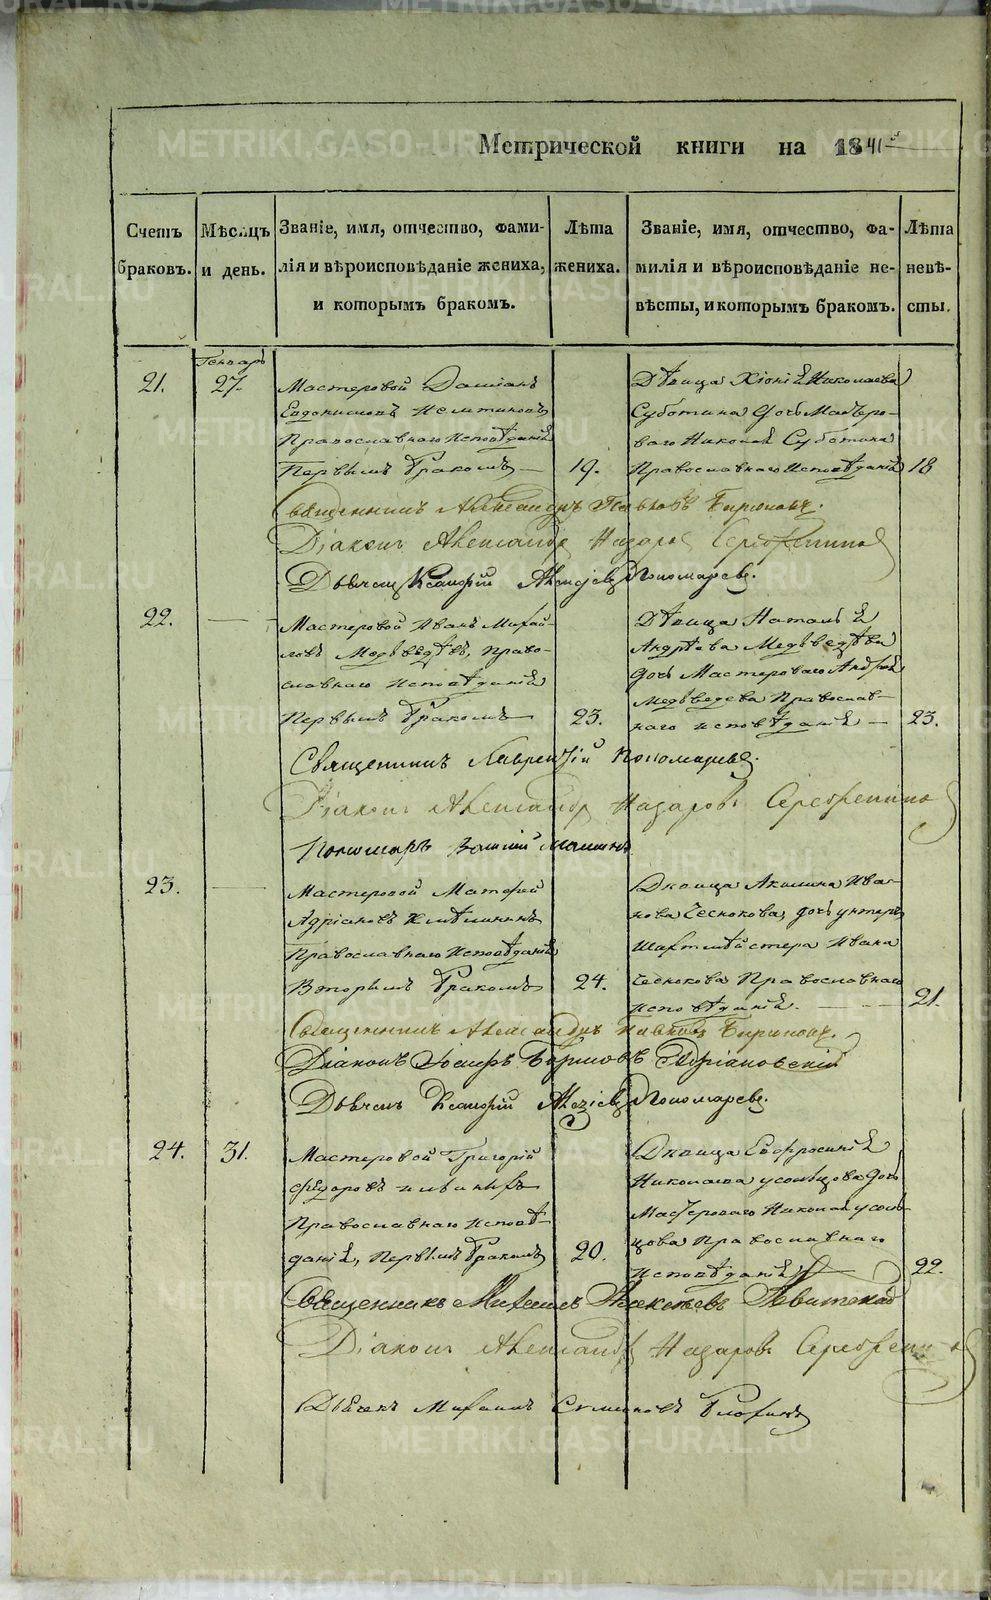 Метрической книги на 1841й
Счетъ браковъ.
Мѣсяцъ и день.
Званіе, имя, отчество, фами-
лія и вѣроисповѣданіе жениха,
и которымъ бракомъ.
Лѣта жениха.
Званіе, имя, отчество, фа-
милія и вѣроисповѣданіе не-
вѣсты, и которымъ бракомъ.
Лѣта невѣ-
сты.
Генварь
21. 27.
Мастеровой Даміанъ
Евдокимовъ
Православнаго Исповѣданія
Первымъ бракомъ 19.
Дѣвица Хіонія Николаева
Суботина дочь Мастеро-
ваго Николая Суботина
Православнаго Исповѣданія 18
Священникъ Александръ Павловъ Бирюковъ.
Діаконъ Александръ Назаровъ Серебренниковъ
Дьячекъ Ксенофонтій Алексѣевъ Пономаревъ.
22.
Мастеровой Иванъ Михай-
ловъ Медвѣдевъ, Право-
славнаго Исповѣданія
Первымъ бракомъ 23.
Дѣвица Наталья
Андрѣева Медвѣдѣва
дочь Мастероваго Андрея
Медвѣдева Православ-
наго исповѣданія 23.
Священникъ Лаврентій Пономаревъ.
Діаконъ Александръ Назаровъ Серебренниковъ
Пономарь Василій Маминъ
23.
Мастеровой Матфей
Адріановъ
Православнаго Исповѣданія
Вторымъ бракомъ 24.
Дѣвица Акилина Ива-
нова Чеснокова, дочь унтеръ
шахтмейстера Ивана
Чеснокова Православнаго
исповѣданія. 21.
Священникъ Александръ Павловъ Бирюковъ.
Діаконъ Іосифъ
Дьячекъ Ксенофонтій Алексѣевъ Пономаревъ.
24. 31.
Мастеровой Григорій
Ѳедоровъ
Православнаго Исповѣ-
данія, Первымъ бракомъ 20.
Дѣвица Евфросинія
Николаева Усольцова дочь
Мастероваго Николая Усоль-
цова Православнаго
Исповѣданія 22.
Священникъ Михаилъ Левитскій
Діаконъ Александръ Назаровъ Серебренниковъ
Дьячекъ Михаилъ Симеоновъ
METRIKI.GASO-URAL.RU